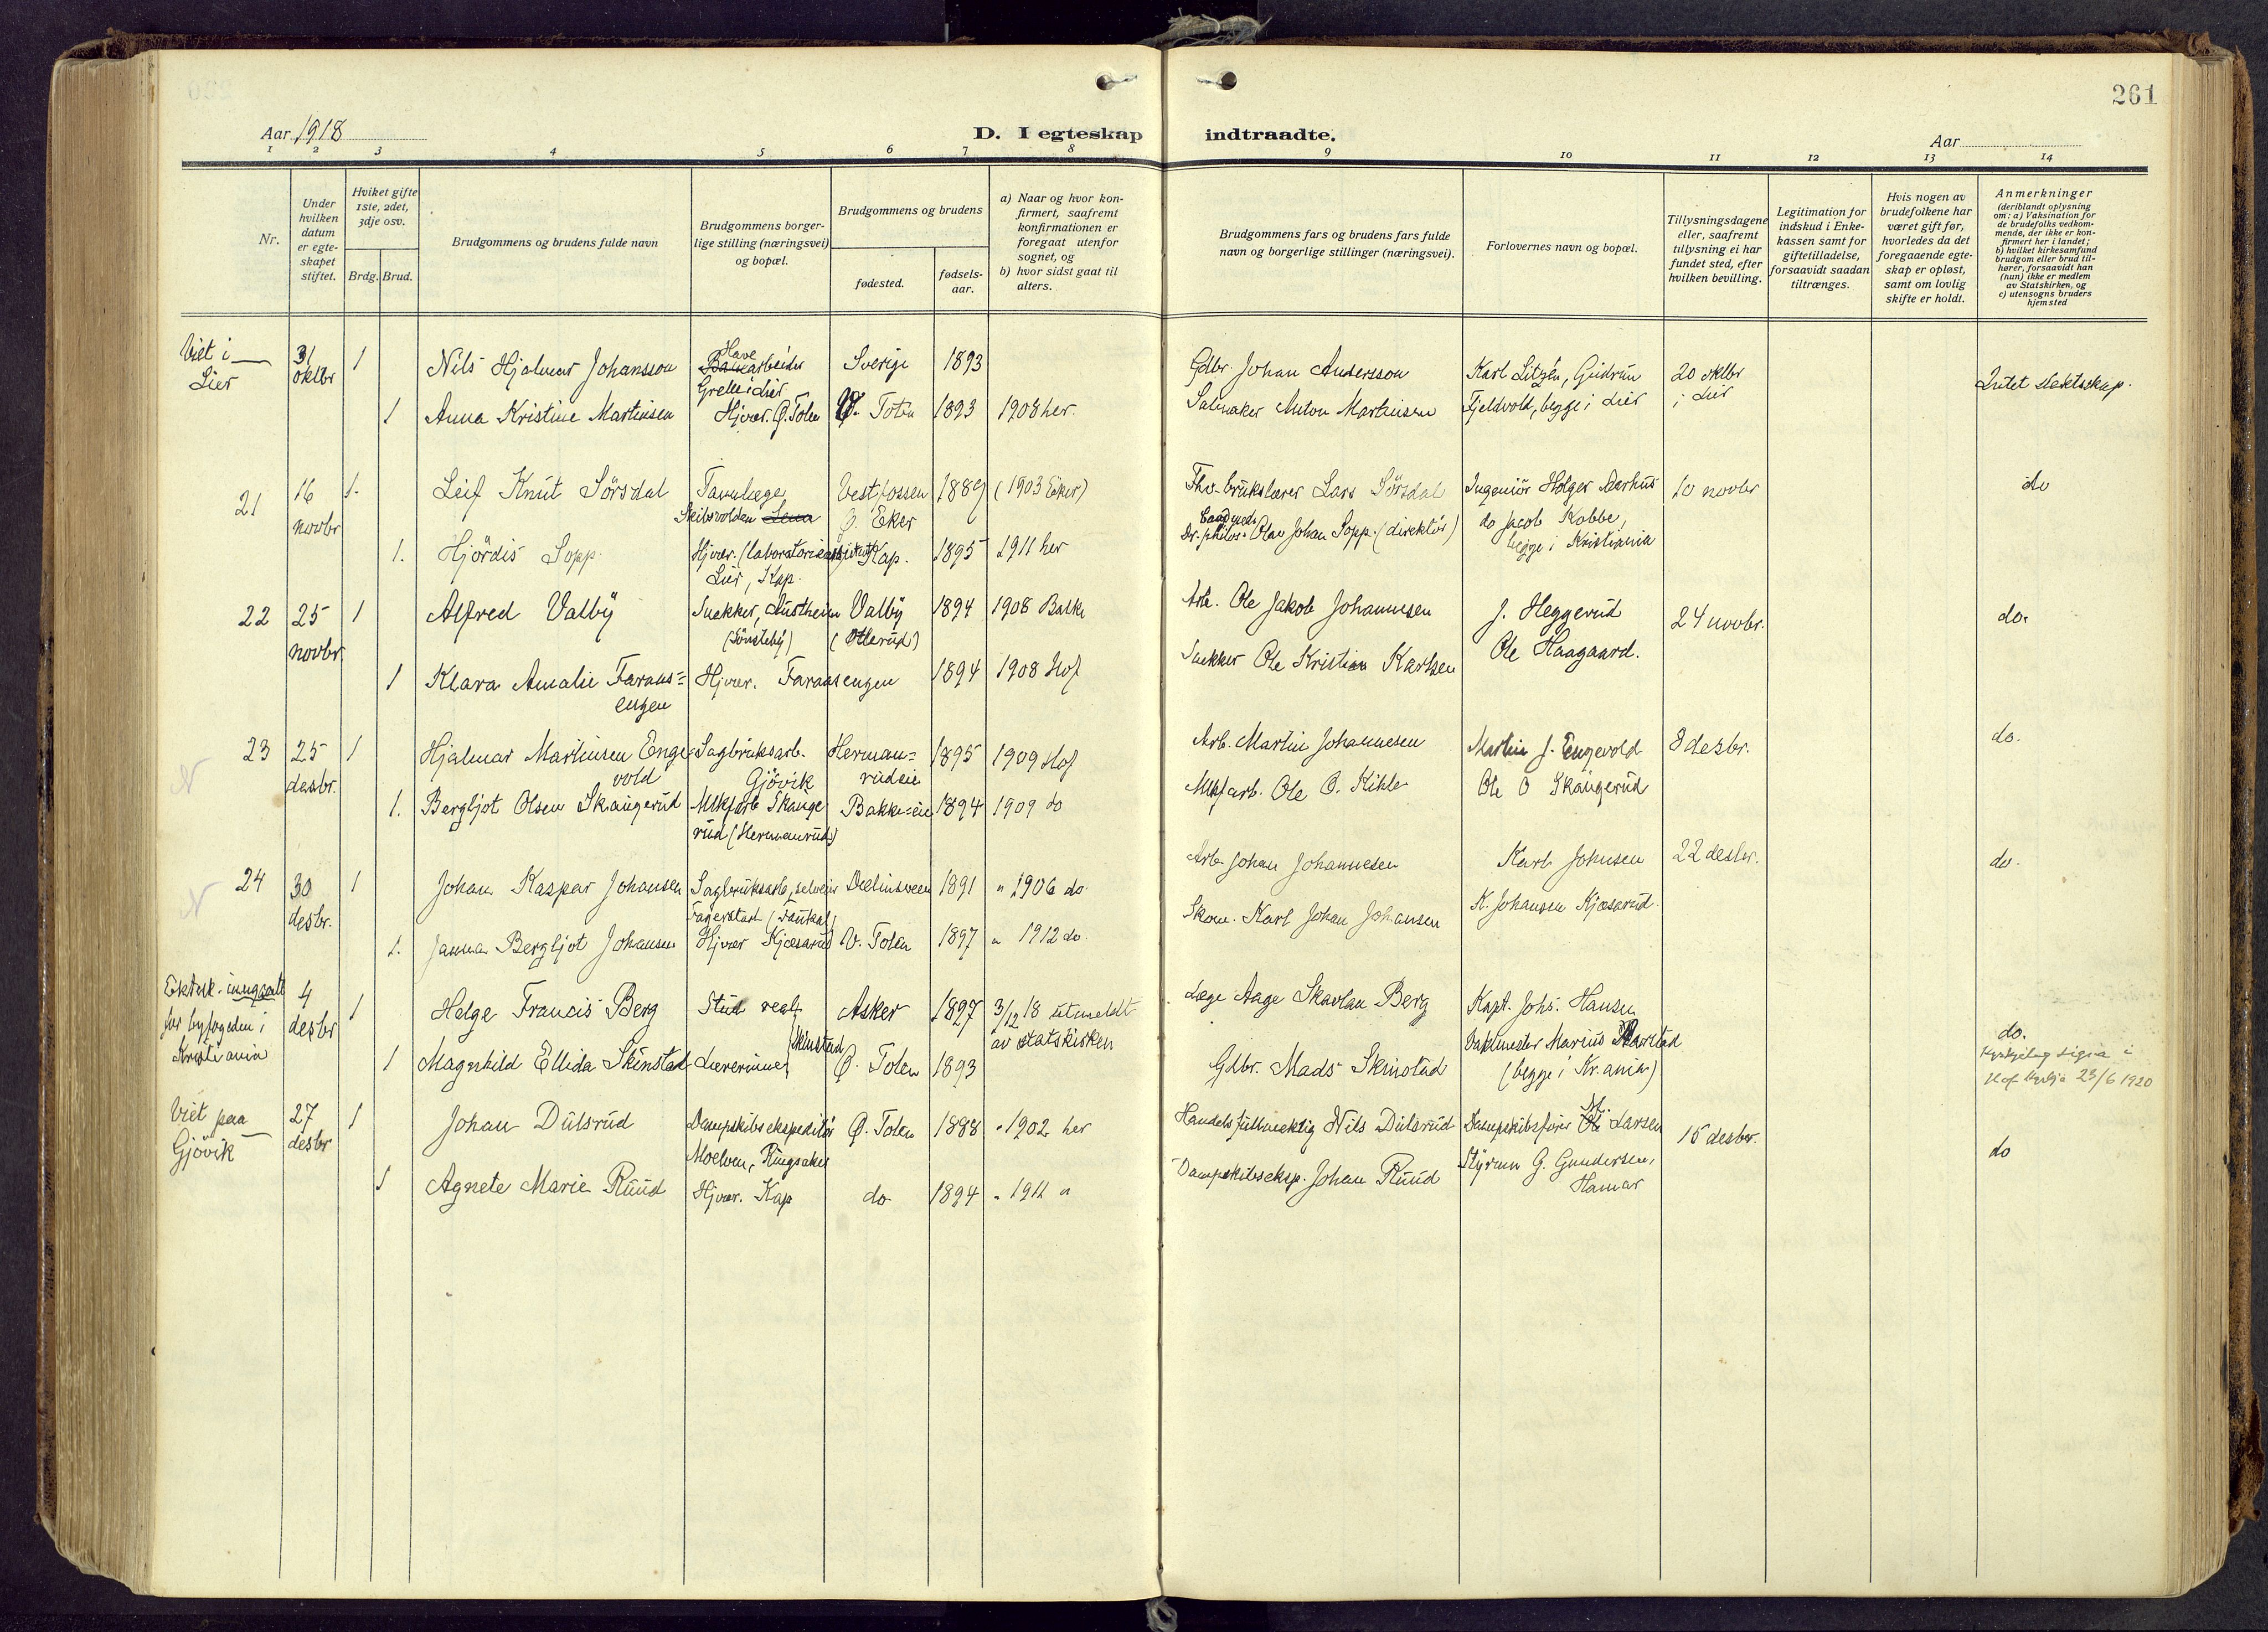 261
Aar 1918
D. I egteskap indtraadte.
Aar
1 2 3 4 5 6 7 8 9 10 11 12 13 14
Nr.
Under
hvilken
datum
er egte-
skapet
stiftet.
Hviket gifte
1ste, 2det,
3dje osv.
Brdg. Brud.
Brudgommens og brudens fulde navn
Brudgommens borger-
lige stilling (næringsvei)
og bopæl.
Brudgommens og brudens
fødested.
fødsels-
aar.
a) Naar og hvor kon-
firmert, saafremt
konfirmationen er
foregaat utenfor
sognet, og
b) hvor sidst gaat til
alters.
Brudgommens fars og brudens fars fulde
navn og borgerlige stillinger (næringsvei).
Forlovernes navn og bopæl.
Tillysningsdagene
eller, saafremt
tillysning ei har
fundet sted, efter
hvilken bevilling.
Legitimation for
indskud i Enke-
kassen samt for
giftetilladelse,
forsaavidt saadan
tiltrænges.
Hvis nogen av
brudefolkene har
været gift før,
hvorledes da det
foregaaende egte-
skap er opløst,
samt om lovlig
skifte er holdt.
Anmerkninger
(deriblandt oplysning
om: a) Vaksination for
de brudefolks vedkom-
mende, der ikke er kon-
firmert her i landet;
b) hvilket kirkesamfund
brudgom eller brud til-
hører, forsaavidt han
(hun) ikke er medlem
av Statskirken, og
c) utensogns bruders
hjemsted
Viet i
Lier
31
oktbr
1
Nils Hjalmar Johansson
Have
arbeider
Grette i Lier
Sverige
1893
Gdbr. Johan Andersson
Karl Litzén, Gudrun
20 oktbr
Intet slektskap.
1
Anna Kristine Martinsen
Hjvær. Ø. Toten
Ø. Toten
1893
1908 her.
Salmaker Anton Martinsen
Fjeldvold, begge i Lier
i Lier
21
16
novbr
1.
Leif Knut Sörsdal
Tannlæge,
Skibsvolden Lena
Vestfossen
Ø. Eker
1889
(1903 Eker)
brukslærer Lars Sörsdal
Ingeniör Holger Aarhus
10 novbr
do
1.
Hjördis Sopp.
Hjvær.
Lier, Kap.
Kap.
1895
1911 her
Dr. philos. Olav Johan Sopp. (direktör)
do Jacob Kobbe,
begge i Kristiania
22
25
novbr
1
Alfred Valby
Snekker, Austheim
(Sönsteby)
Valby
(Otterud)
1894
1908 Balke
Arb. Ole Jakob Johannesen
J. Heggerud
24 novbr.
do.
1
Klara Amalie Faraas=
engen
Hjvær. Faraasengen
1894
1908 Hof
Snekker Ole Kristian Karlsen
Ole Haagaard.
23
25
desbr.
1
Hjalmar Martinsen Enge=
vold
Sagbruksarb.
Gjövik
Herman=
rudeie
1895
1909 Hof
Arb. Martin Johannesen
Martin J. Engevold
8 desbr.
do.
1.
Bergljot Olsen Skaugerud
Mlkfarb Skauge
rud (Hermanrud)
Bakke=eie
1894
1909 do
Mlkfarb. Ole O. Kihle
Ole O Skaugerud
24
30
desbr.
1
Johan Kaspar Johansen
Sagbruksarb, selveier
Fagerstad
1891
" 1906 do.
Arb. Johan Johannesen
Karl Johnsen
22 desbr.
do.
1.
Janna Bergljot Johansen
Hjvær Kjøsarud
V. Toten
1897
" 1912 do.
Skom. Karl Johan Johansen
K. Johansen Kjøsarud
Ektesk. inngaatt
for byfogeden i
Kristiania
4
desbr
1
Helge Francis Berg
Stud real,
Asker
1897
3/12 18 utmeldt
av statskirken
Læge Aage Skavlan Berg
Kapt. Johs. Hansen
do.
Kyrkjeleg signa i
Hof kyrkja 23/6 1920
1
Magnhild Ellida Skinstad
Lærerinne,
Ø. Toten
1893
Gdbr. Mads Skinstad
Vaktmester Marius
(begge i Kr.ania)
Viet paa
Gjövik
27
desbr
1
Johan Dulsrud
Dampskibsekspeditör
Moelven, Ringsaker
Ø. Toten
1888
" 1902 her
Handelsfullmektig Nils Dulsrud
Dampskibsförer M. Larsen
15 desbr.
do
1
Agnete Marie Ruud
Hjvær. Kap
do
1894
" 1911 "
Dampskibseksp. Johan Ruud
Styrmn G. Gundersen,
Hamar